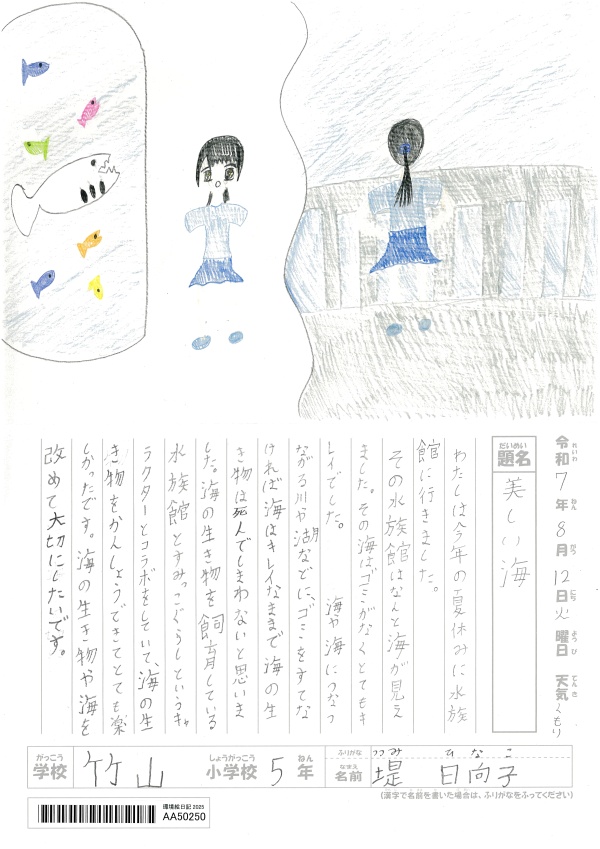 令和7年8月12日火曜日 天気くもり
れいわ ねん がつ にち ようび てんき
だいめい
題名 美しい海
わたしは今年の夏休みに水族
館に行きました。
その水族館はなんと海が見え
ました。その海はゴミがなくとてもキ
レイでした。 海や海につなっ
ながる川や湖などに、ゴミをすてな
ければ海はキレイなままで海の生
き物は死んでしまわないと思いま
した。海の生き物を飼育している
水族館とすみっこぐらしというキャ
ラクターとコラボをしていて、海の生
き物をかんしょうできてとても楽
しかったです。海の生き物や海を
改めて大切にしたいです。
がっこう しょうがっこう ねん
学校 竹山 小学校 5年
ふりがな つつみ ひなこ
なまえ
名前 堤 日向子
(漢字で名前を書いた場合は、ふりがなをふってください)
環境絵日記 2025
AA50250